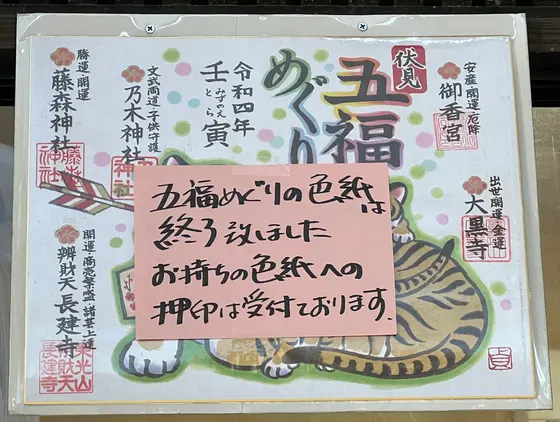 伏見
五福
めぐり
令和四年
壬寅
みずのえ
とら
安産・開運・厄除
御香宮
出世開運・金運
大黒寺
文武両道・子供守護
乃木神社
勝運・開運
藤森神社
開運・商売繁盛 諸芸上達
辨財天長建寺
五福めぐりの色紙は
終了致しました
お持ちの色紙への
押印は受付ております.